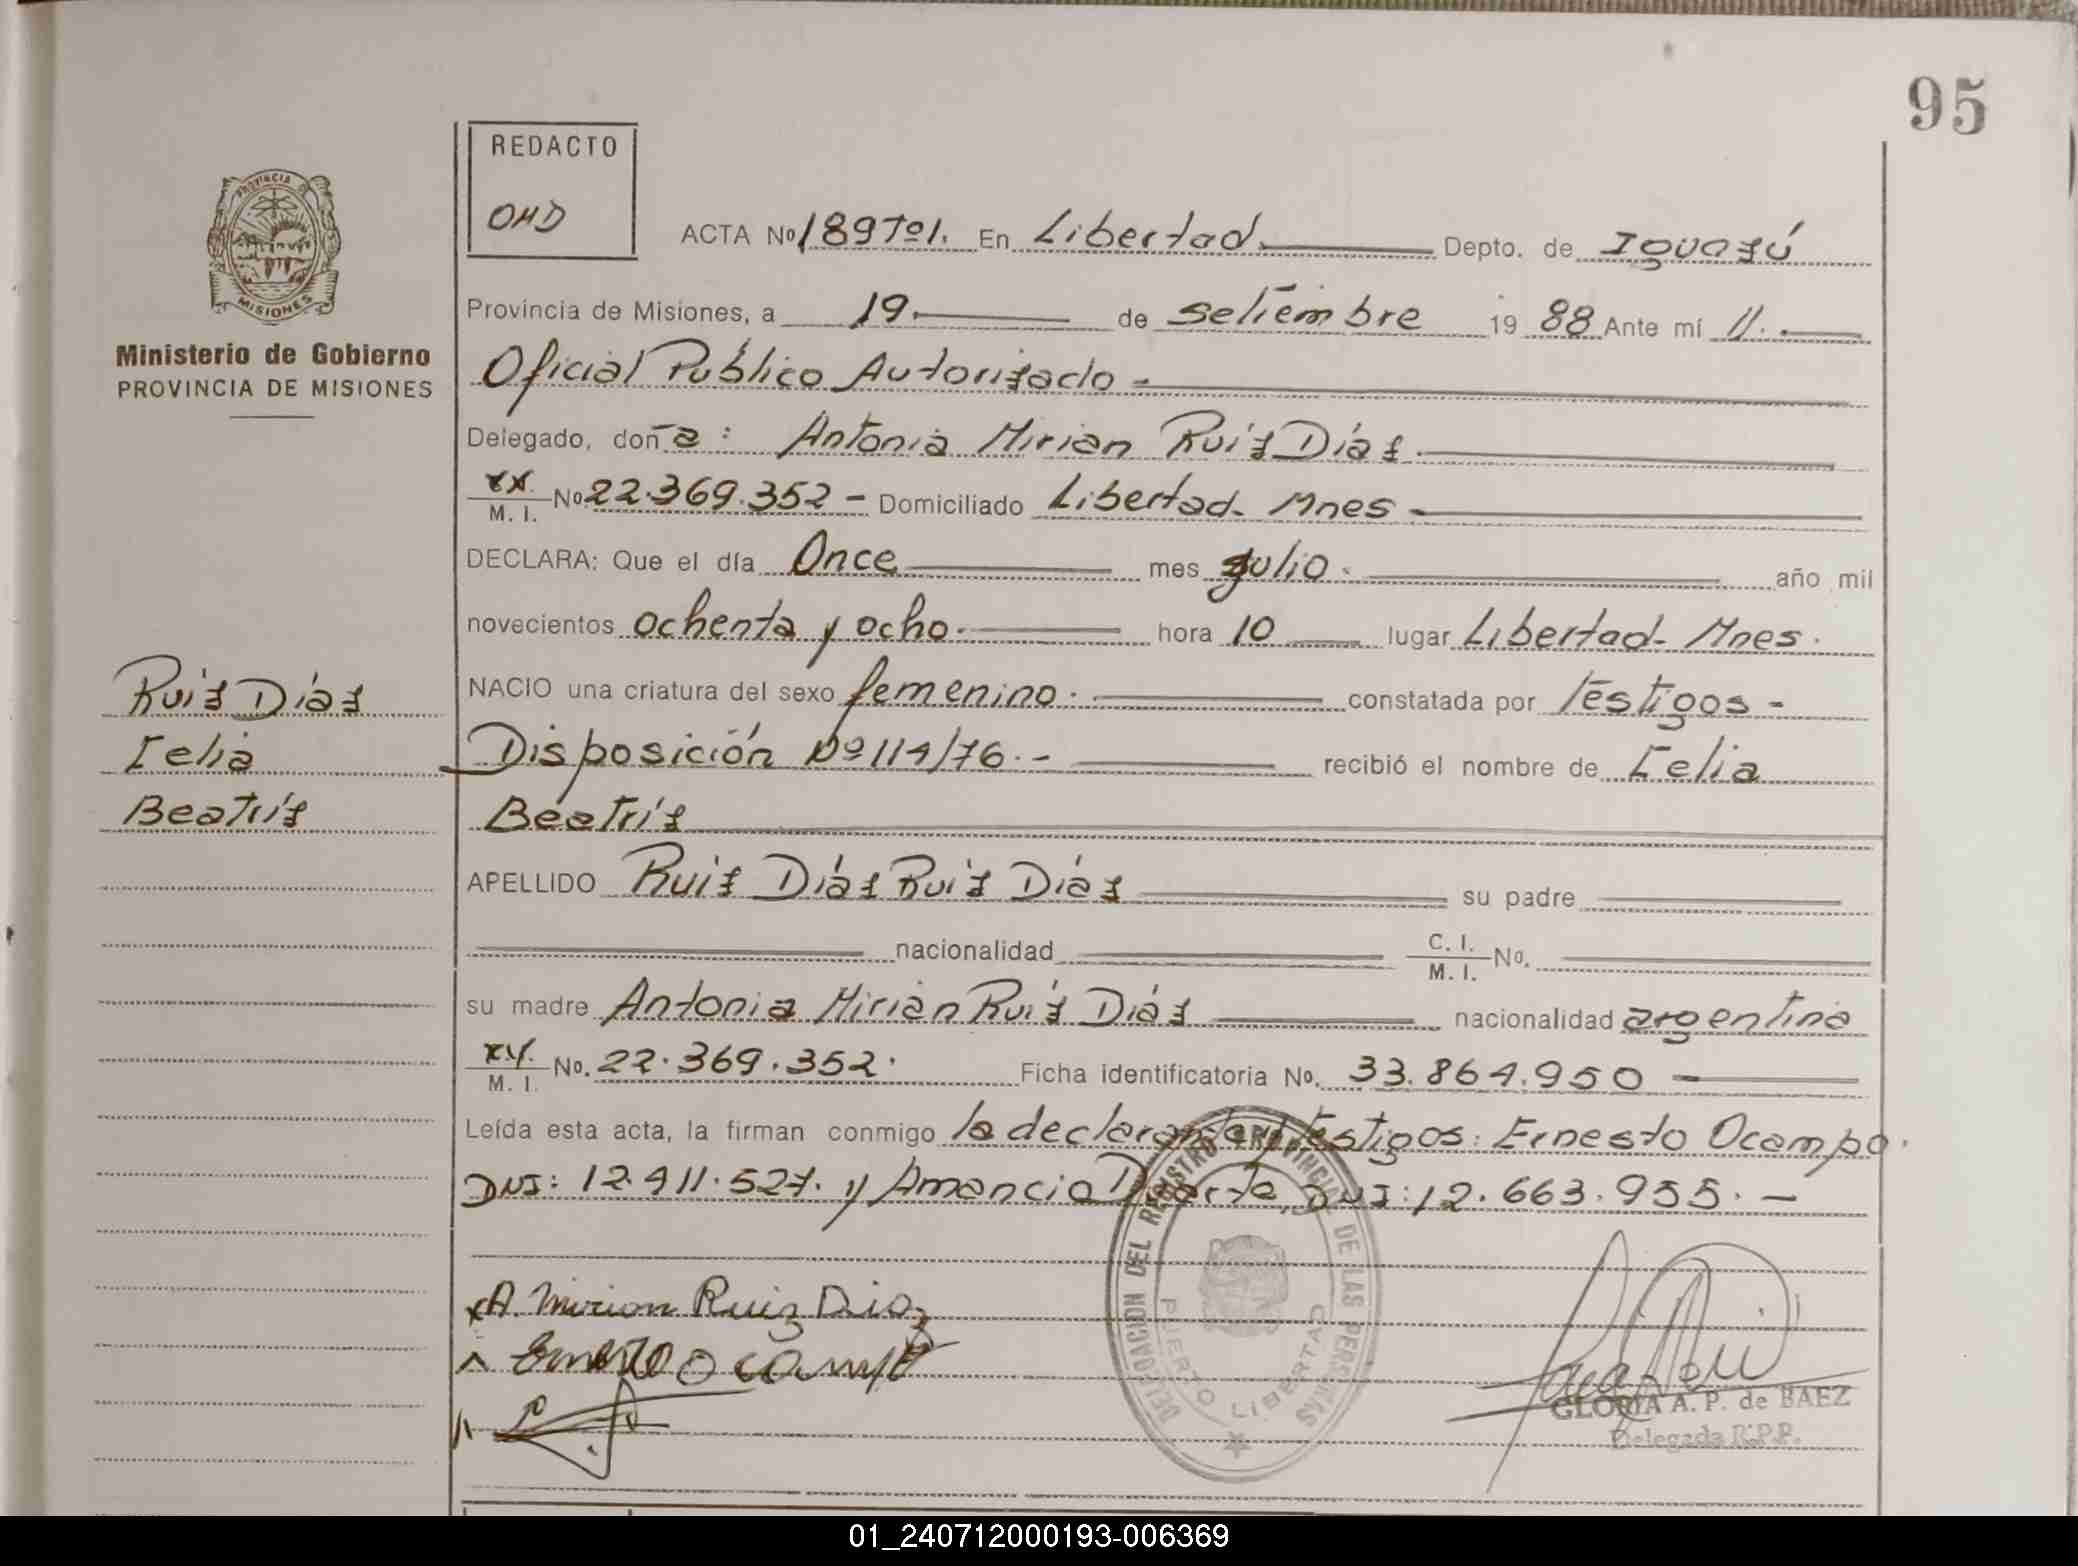 95
REDACTO
OHD
PROVINCIA DE
MISIONES
Ministerio de Gobierno
PROVINCIA DE MISIONES
ACTA Nº 189Tº1. En Libertad Depto. de Iguazú
Provincia de Misiones, a 19. de setiembre 19 88 Ante mí
Oficial Público Autorizado -
Delegado, doña: Antonia Mirian Ruiz Díaz.
M. I. Nº 22.369.352 - Domiciliado Libertad - Mnes -
DECLARA: Que el día Once mes Julio. año mil
novecientos ochenta y ocho. hora 10 lugar Libertad - Mnes.
NACIO una criatura del sexo femenino. constatada por Testigos -
Disposición Nº 114/76. - recibió el nombre de Celia
Beatríz
Ruiz Díaz
Celia
Beatríz
APELLIDO Ruiz Díaz Ruiz Díaz su padre
nacionalidad C. I. M. I. Nº.
su madre Antonia Mirian Ruiz Díaz nacionalidad argentina
M. I. Nº. 22.369.352. Ficha identificatoria Nº. 33.864.950 -
Leída esta acta, la firman conmigo la declarante y testigos: Ernesto Ocampo.
DNI: 12.911.527. y Amancio Duarte, DNI: 12.663.955. -
x A. Mirion Ruiz Diaz
Ernesto Ocampo
DELEGACION DEL REGISTRO PROVINCIAL DE LAS PERSONAS
PUERTO LIBERTAD
GLORIA A. P. de BAEZ
Delegada R.P.P.
01_240712000193-006369